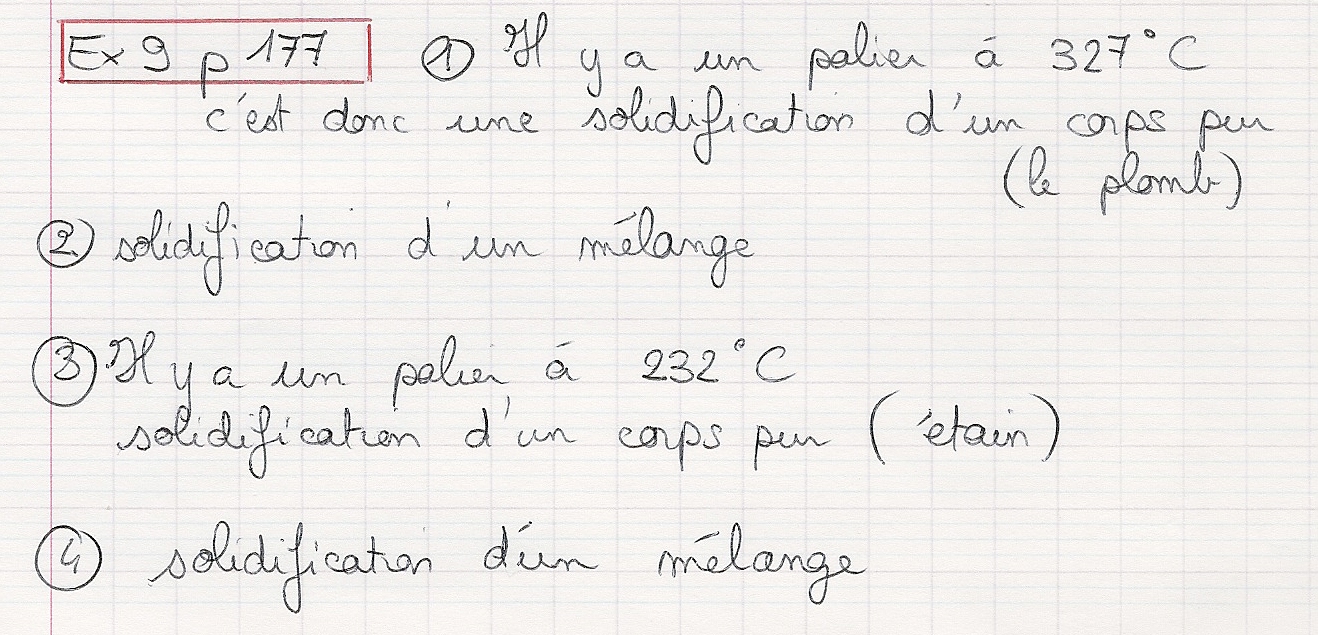 Ex 9 p 177 ① Il y a un palier à 327°C
c'est donc une solidification d'un corps pur
(le plomb)
② solidification d'un mélange
③ Il y a un palier à 232°C
solidification d'un corps pur (étain)
④ solidification d'un mélange